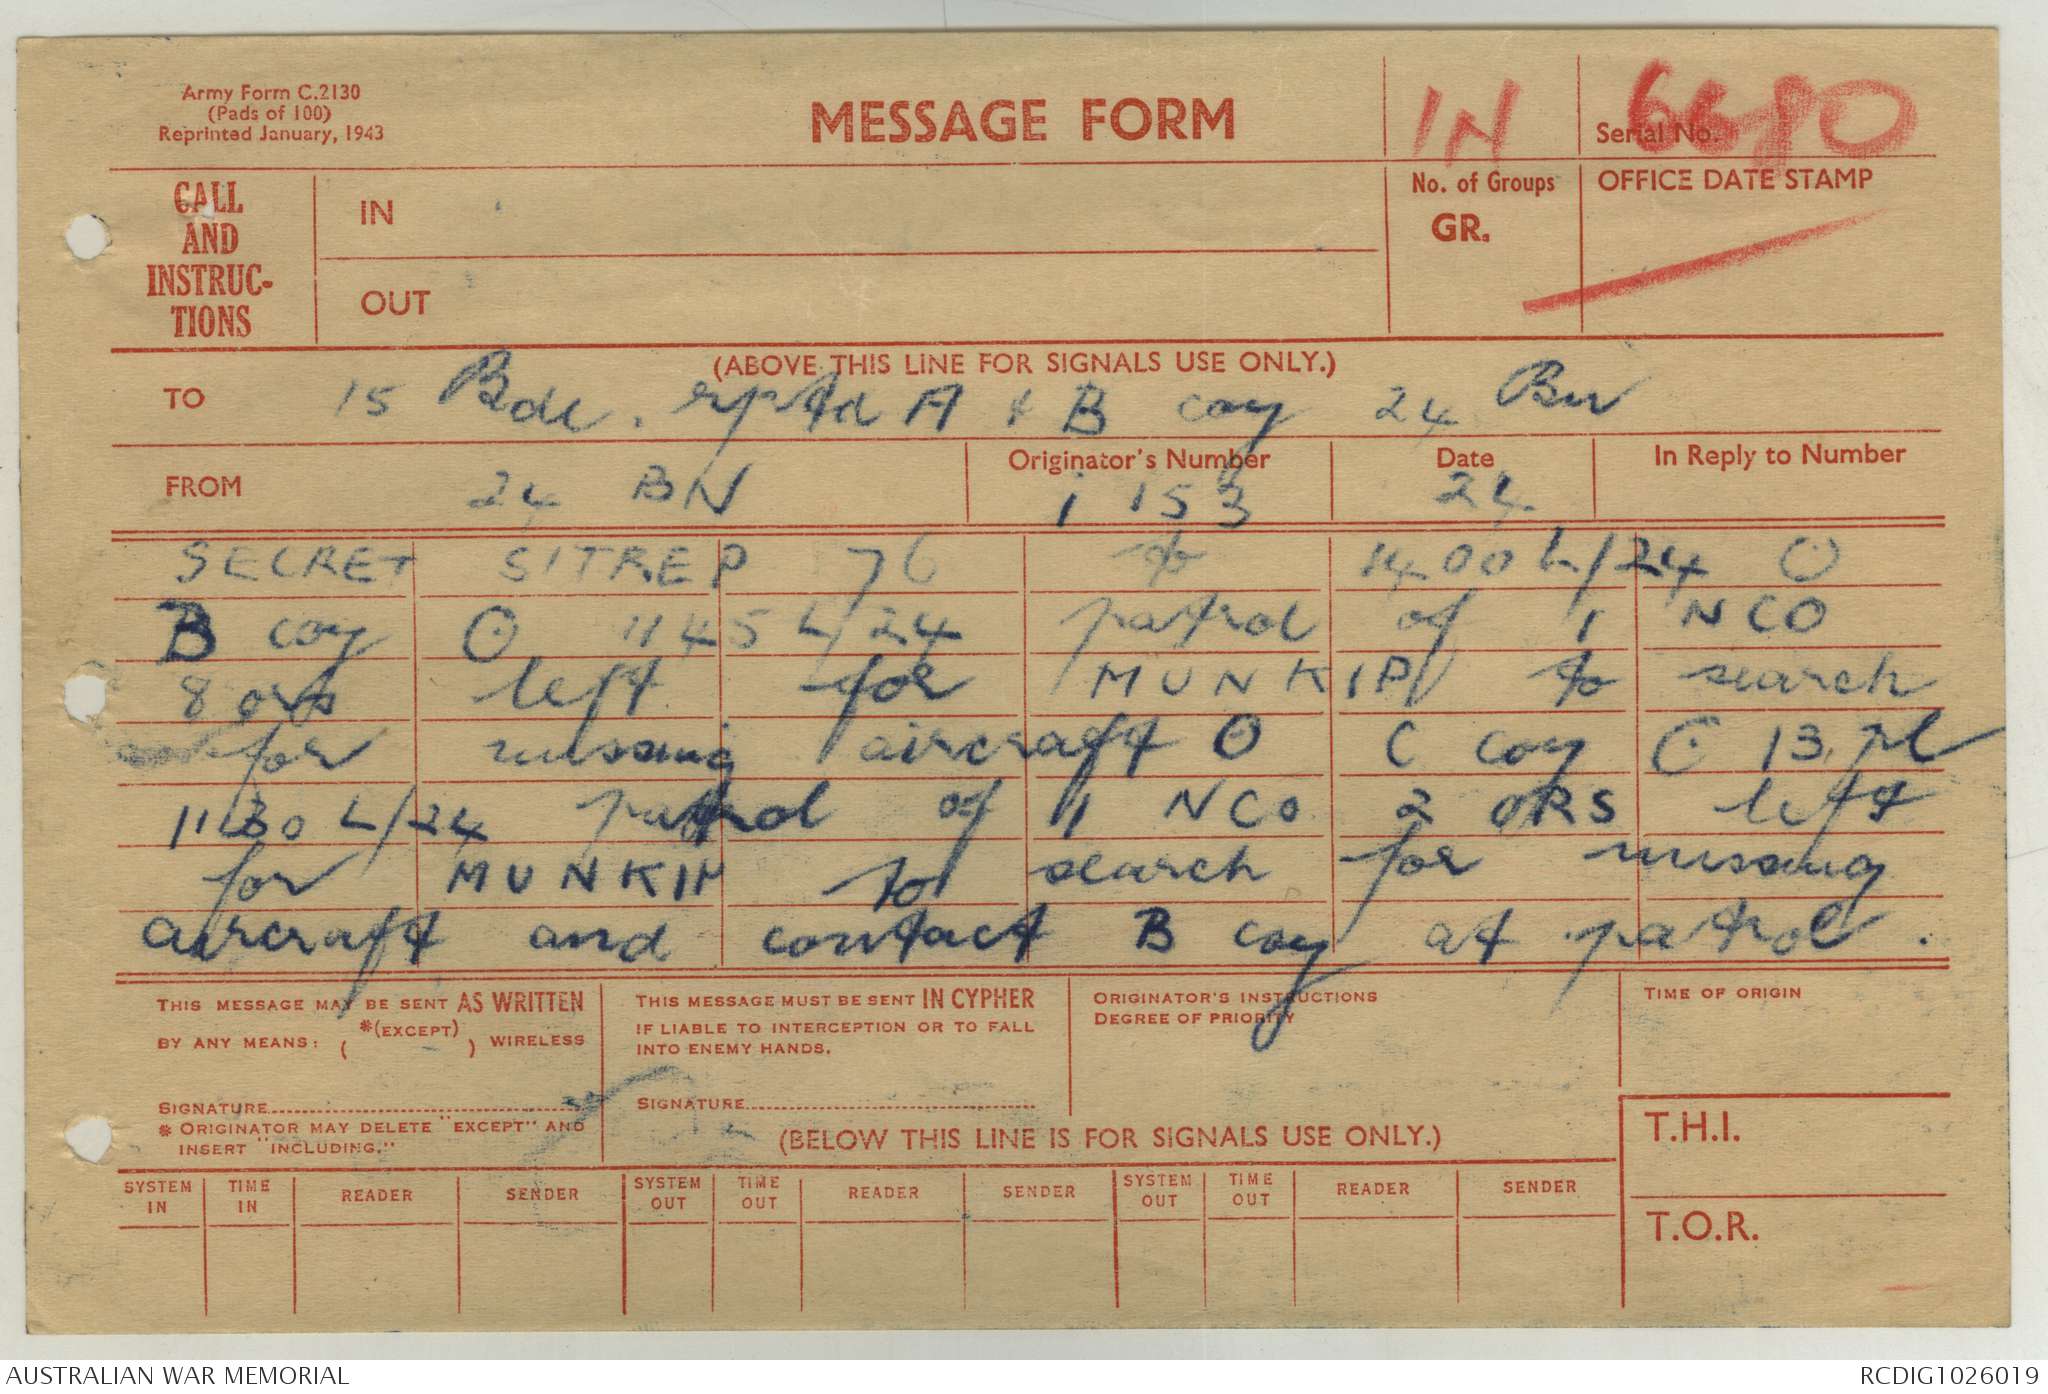 Army Form C.2130
(Pads of 100)
Reprinted January, 1943
MESSAGE FORM
IN
Serial No. 6680
CALL
AND
INSTRUC-
TIONS
IN
OUT
No. of Groups
GR.
OFFICE DATE STAMP
(ABOVE THIS LINE FOR SIGNALS USE ONLY.)
TO 15 Bde. rptd A & B coy 24 Bn
FROM 24 BN
Originator's Number
i 153
Date
24.
In Reply to Number
SECRET SITREP 76 to 1400 L/24 O
B coy O 1145 L/24 patrol of 1 NCO
8 ors left for MUNKIP to search
for missing aircraft O C coy O 13 pl
1130 L/24 patrol of 1 NCO 2 ORS left
for MUNKIP to search for missing
aircraft and contact B coy at patrol.
THIS MESSAGE MAY BE SENT AS WRITTEN
BY ANY MEANS: ( *(EXCEPT) ) WIRELESS
SIGNATURE
* ORIGINATOR MAY DELETE "EXCEPT" AND
INSERT "INCLUDING."
THIS MESSAGE MUST BE SENT IN CYPHER
IF LIABLE TO INTERCEPTION OR TO FALL
INTO ENEMY HANDS.
SIGNATURE
ORIGINATOR'S INSTRUCTIONS
DEGREE OF PRIORITY
TIME OF ORIGIN
(BELOW THIS LINE IS FOR SIGNALS USE ONLY.)
T.H.I.
T.O.R.
SYSTEM IN TIME IN READER SENDER SYSTEM OUT TIME OUT READER SENDER SYSTEM OUT TIME OUT READER SENDER
AUSTRALIAN WAR MEMORIAL
RCDIG1026019